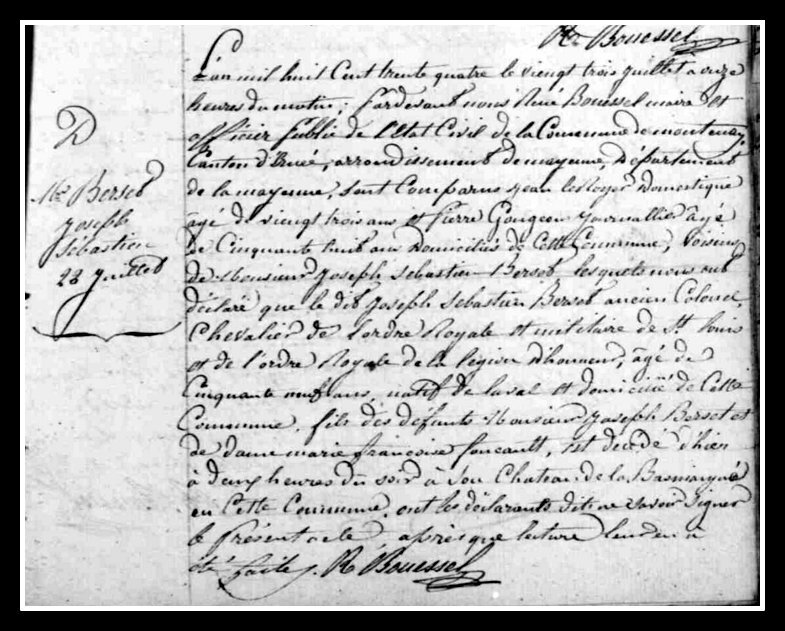 R. Bouessel
L'an mil huit Cent trente quatre le viengt trois juillet à onze
heures du matin; pardevant nous René Bouessel maire et
officier public de l'Etat Civil de la Commune de montenay,
Canton d'Ernée, arrondissement de mayenne, Département
de la mayenne, sont Comparus jean leRoyer Domestique
âgé de viengt trois ans et Pierre Gougeon journallier âgé
de Cinquante huit ans Domiciliés de Cette Commune, Voisins
de Monsieur Joseph Sebastien Berset lesquels nous ont
déclaré que le dit Joseph Sebastien Berset ancien Colonel
Chevalier de l'ordre Royale et militaire de St louis
et de l'ordre Royale de la legion d'honneur, âgé de
Cinquante neuf ans, natif de laval et domicilié de Cette
Commune, fils des défunts Monsieur Joseph Berset et
de dame marie françoise foucault, est décédé d'hier
à deux heures du soir à son Chateau de la
en Cette Commune, ont les déclarants dit ne savoir signer
le présent acte, après que lecture leur en a
été faite. R Bouessel
D
Mr Berset
Joseph
Sébastien
22 Juillet